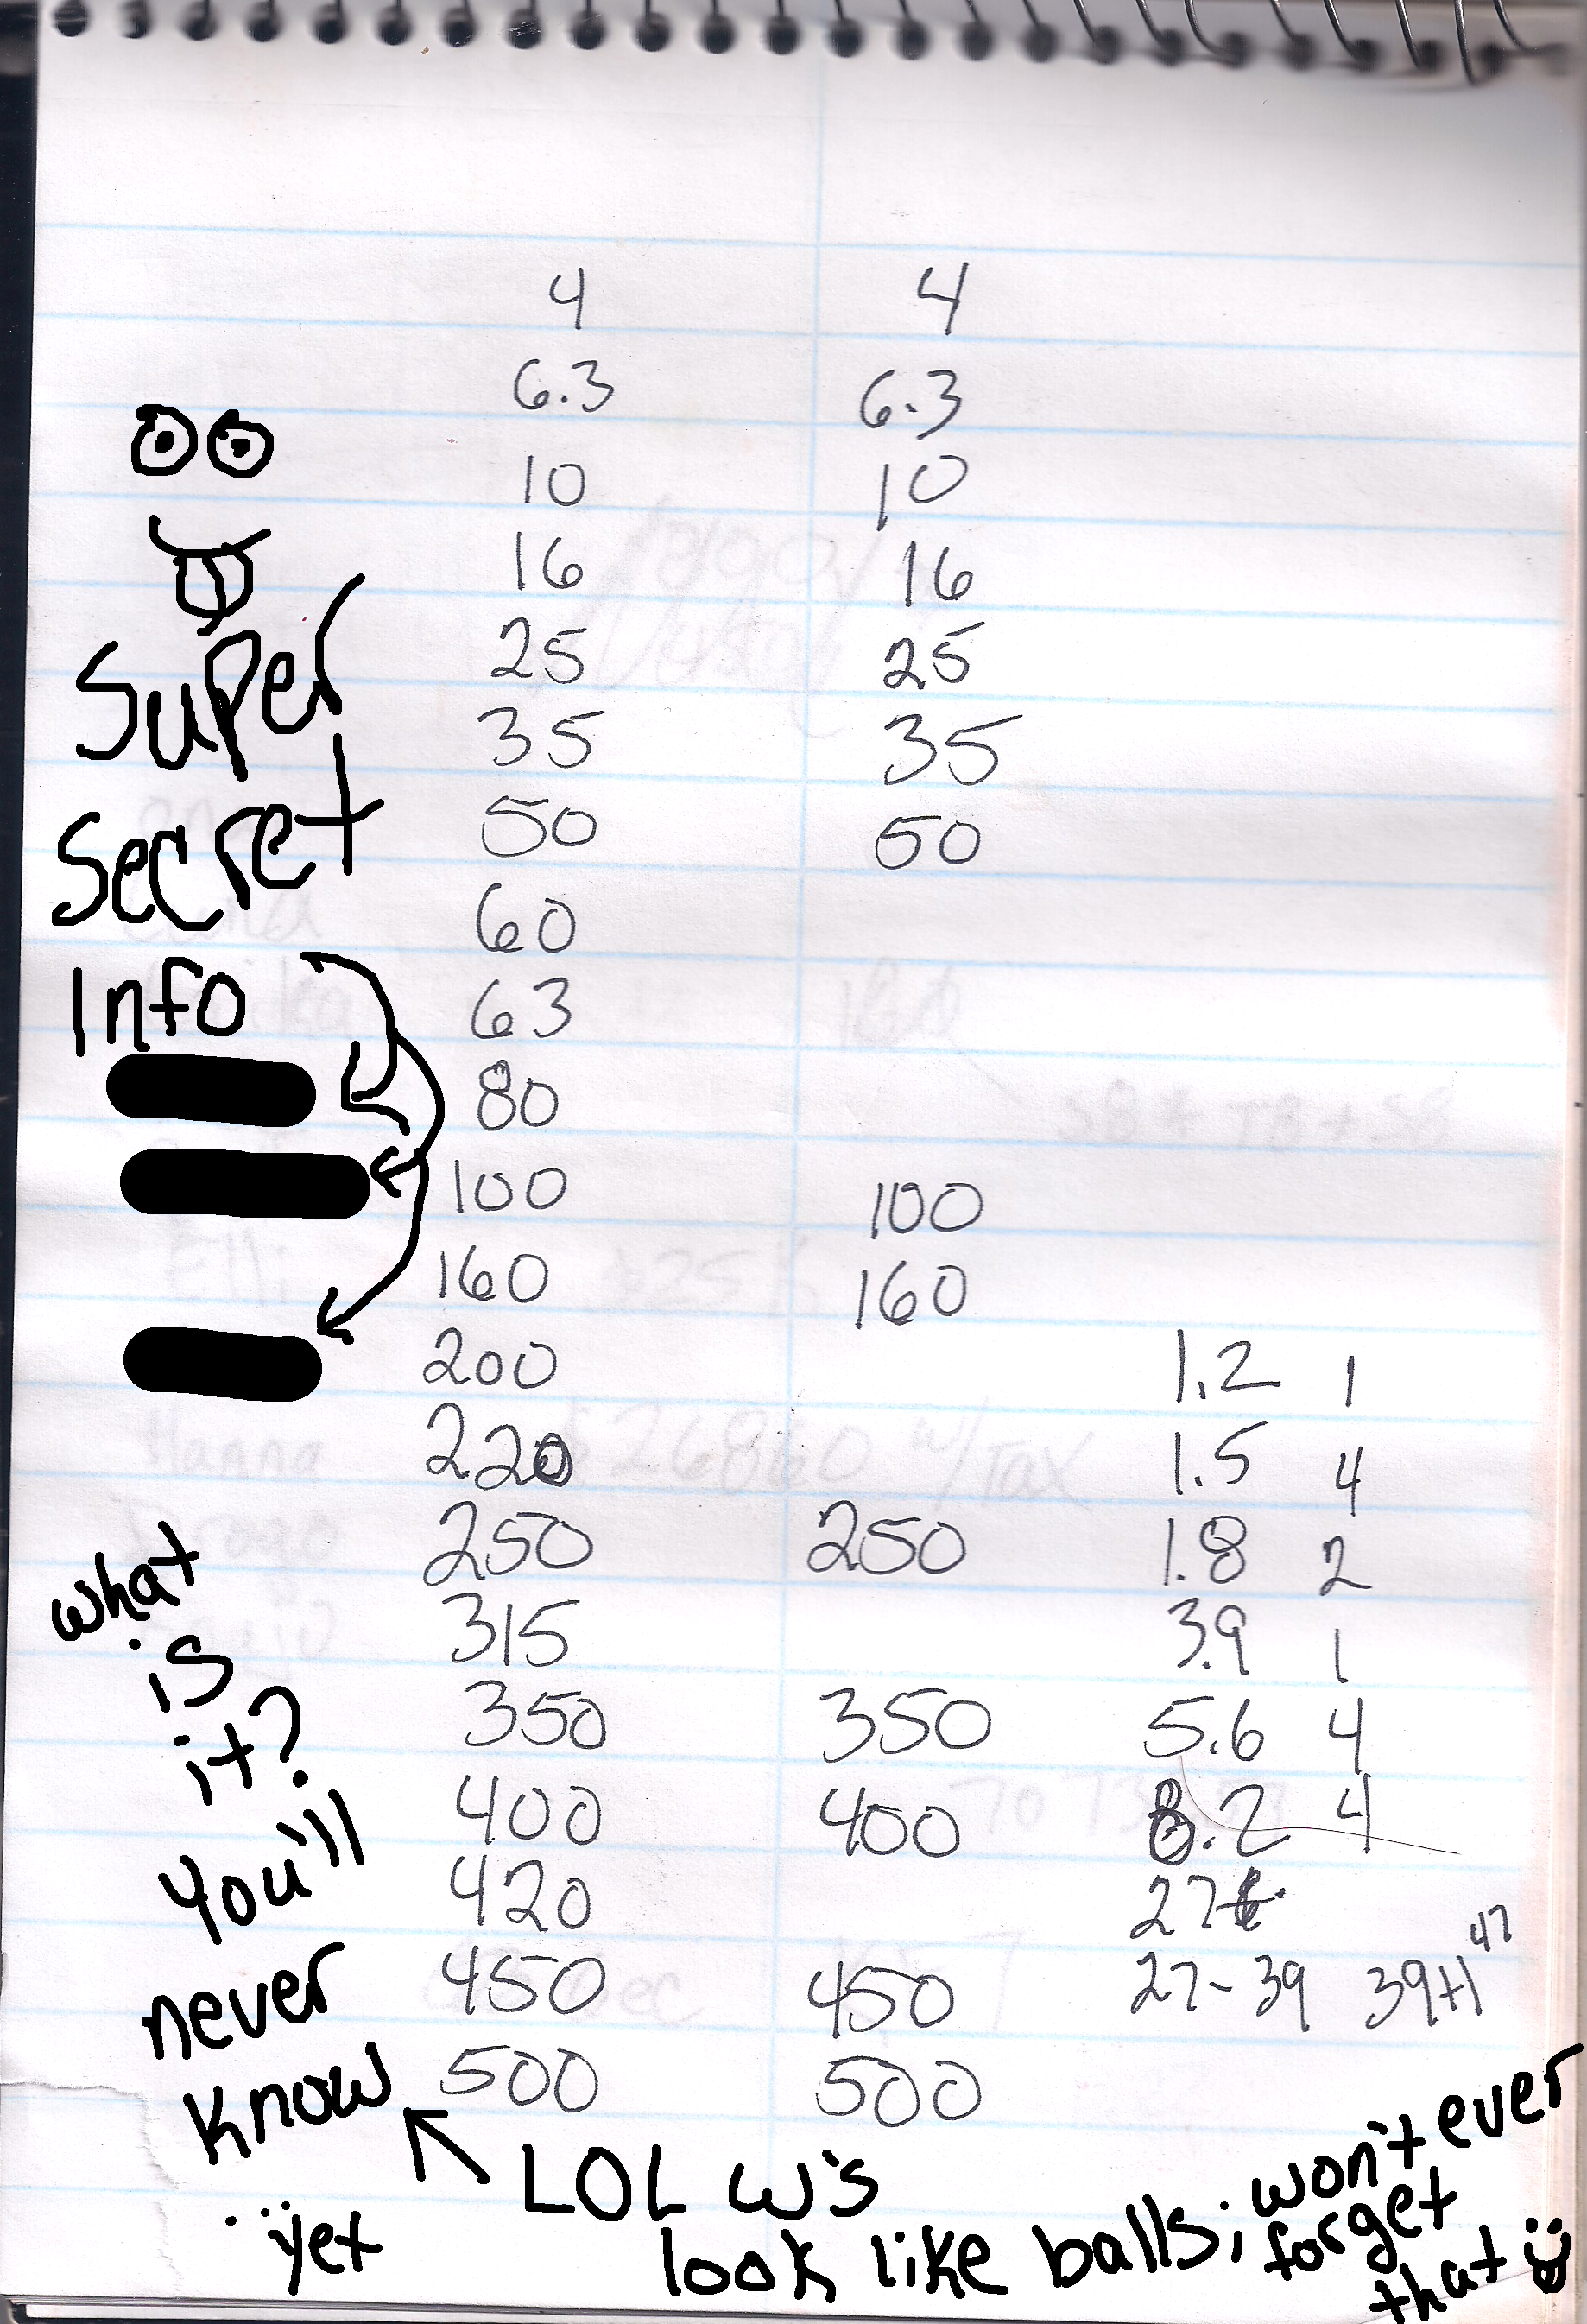 4 4
6.3 6.3
10 10
16 16
25 25
35 35
50 50
60
63
80
100 100
160 160
200 1.2 1
220 1.5 4
250 250 1.8 2
315 3.9 1
350 350 5.6 4
400 400 8.2 4
420 27
450 450 27-39 39+1 47
500 500
Super
Secret
Info
what
is
it?
You'll
never
know
..yet
LOL w's
look like balls; won't ever
forget
that
$26860 w/Tax
Hanna